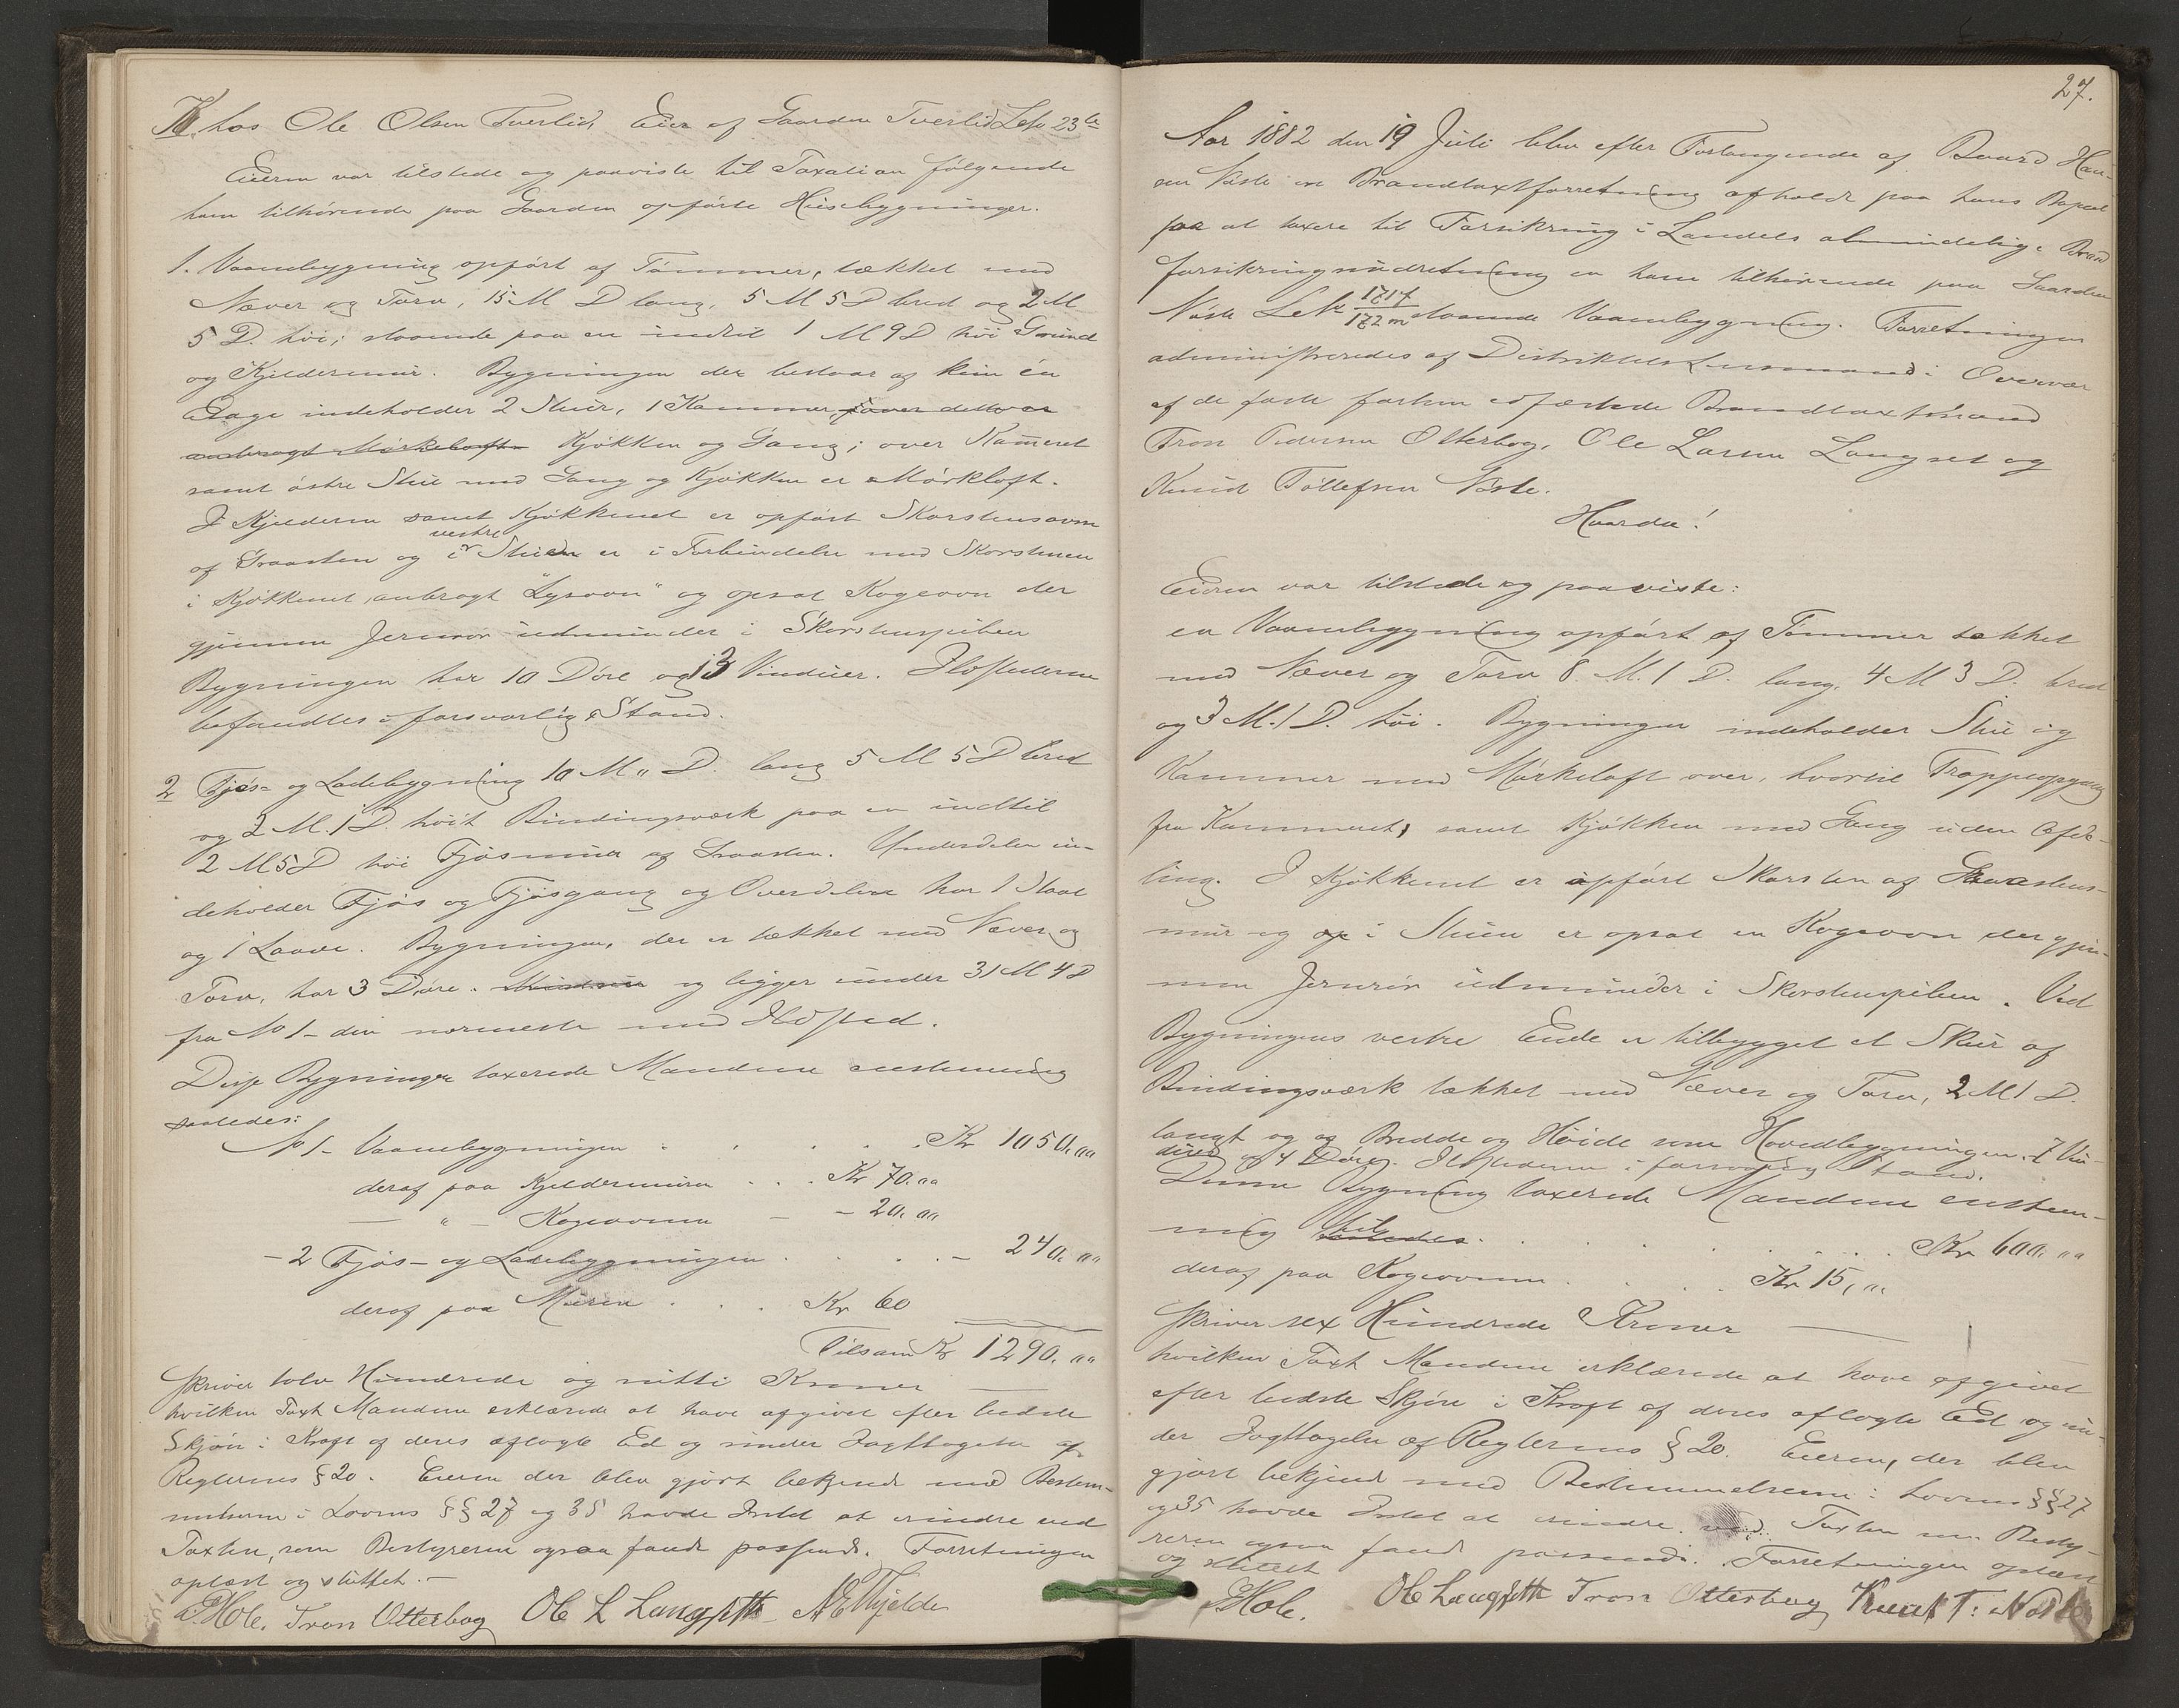 K. hos Ole Olsen Tverlid, Eier af Gaarden Tverlid LNo 23
Eieren var tilstede og paaviste til Taxation følgende
ham tilhørende paa Gaarden opførte Husebygninger.
1. Vaanebygning opført af Tømmer, tækket med
Næver og Torv, 15 M D lang, 5 M 5 D bred og 2 M
5 D. høi; staaende paa en indtil 1 M 9 D høi Grund
og Kjeldermur. Bygningen der bestaar af kun én
Etage indeholder 2 Stuer, 1 Kammer, over dette er
anbragt Mørkeloft Kjøkken og Gang; over Kammeret
samt østre Stue med Gang og Kjøkken er Mørkloft.
I Kjelderen samt Kjøkkenet er opført Skorstensovn
vestre
af Graasten og i Stue er i Forbindelse med Skorstenen
i Kjøkkenet anbragt "Lysovn" og opsat Kogeovn der
gjennem Jernrør udmunder i Skorstenspiben
Bygningen har 10 Døre og 13 Vinduer. Ildstederne
befandtes i forsvarlig Stand.
2 Fjøs- og Ladebygning 10 M " D. lang 5 M 5 D bred
og 2 M. 1 D. høit Bindingsværk paa en indtil
2 M 5 D høi Fjøsmur af Graasten. Underdelen in-
deholder Fjøs og Fjøsgang og Overdelen har 1 Stal
og 1 Laave. Bygningen, der er tækket med Næver og
Torv, har 3 Døre. og ligger under 31 M 4 D
fra No 1 - den nærmeste med Ildsted.
Disse Bygninger taxerede Mændene eenstemmig
saaledes:
No 1 - Vaanebygningen . . . . . Kr 1050.00
deraf paa Kjeldermuren . . . Kr 70.00
— " — Kogeovnen — - 20.00
- 2 Fjøs- og Ladebygningen . . . . - 240.00
deraf paa Muren . . . Kr 60
Tilsam Kr 1290.00
skriver tolv Hundrede og nitti Kroner
hvilken Taxt Mændene erklærede at have afgivet efter bedste
Skjøn i Kraft af deres aflagte Ed og under Iagttagelse af
Reglernes § 20. Eieren der blev gjort bekjendt med Bestem-
melserne i Lovens §§ 27 og 35 havde Intet at erindre ved
Taxten, som Bestyreren ogsaa fandt passende. Forretningen
oplæst og sluttet. —
Hole. Tron Otterbog Ole L Langseth
27.
Aar 1882 den 19 Juli blev efter Forlangende af Baard Han-
sen Nøste en Brandtaxtforretning afholdt paa hans Bopæl
for at taxere til Forsikring i Landets almindelige Brand
forsikringsindretning en ham tilhørende paa Gaarden
Nøste LNo 171f/172m staaende Vaanebygning. Forretningen
administreredes af Distriktets Lensmand i Overvær
af de faste forhen edfæstede Brandtaxtmænd
Tron Pedersen Otterbog, Ole Larsen Langset og
Knud Tollefsen Nøste.
Hvorda!
Eieren var tilstede og paaviste:
en Vaanebygning opført af Tømmer tækket
med Næver og Torv 8. M. 1 D. lang, 4 M 3 D. bred
og 3 M. 1 D. høi. Bygningen indeholder Stue og
Kammer med Mørkeloft over, hvortil Trappeopgang
fra Kammeret, samt Kjøkken med Gang uden Afde-
ling. I Kjøkkenet er opført Skorsten af Graastens-
mur og i Stuen er opsat en Kogeovn der gjen-
nem Jernrør udmunder i Skorstenspiben. Ved
Bygningens vestre Ende er tilbygget et Skur af
Bindingsværk tækket med Næver og Torv, 2 M 1 D.
langt og af Bredde og Høide som Hovedbygningen. 7 Vin-
duer og 4 Døre. Ildstederne i forsvarlig Stand.
Denne Bygning taxerede Mændene enstem-
mig til . . . . . . Kr 600.00
deraf paa Kogeovnen . . . Kr 15,00
skriver sex Hundrede Kroner
hvilken Taxt Mændene erklærede at have afgivet
efter bedste Skjøn i Kraft af deres aflagte Ed og un-
der Iagttagelse af Reglernes § 20. Eieren, der blev
gjort bekjendt med Bestemmelserne i Lovens §§ 27
og 35 havde Intet at erindre ved Taxten som Besty-
reren ogsaa fandt passende. Forretningen oplæst
og sluttet
Hole. Ole Langseth Tron Otterbog Knut T: Nøste